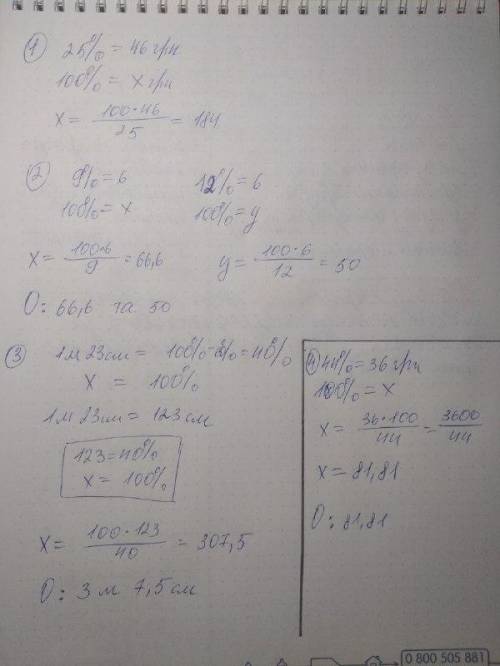 1 25% = 46 грн
100% = x грн
x = 100·46 / 25 = 184
2 9% = 6 12% = 6
100% = x 100% = y
x = 100·6 / 9 = 66,6 y = 100·6 / 12 = 50
О: 66,6 та 50
3 1м 23см = = 40%
x = 100%
1м 23см = 123см
123 = 40%
x = 100%
x = 100·123 / 40 = 307,5
О: 3 м 7,5 см
4 44% = 36 грн
100% = x
x = 36·100 / 44 = 3600 / 44
x = 81,81
О: 81,81
0 800 505 881